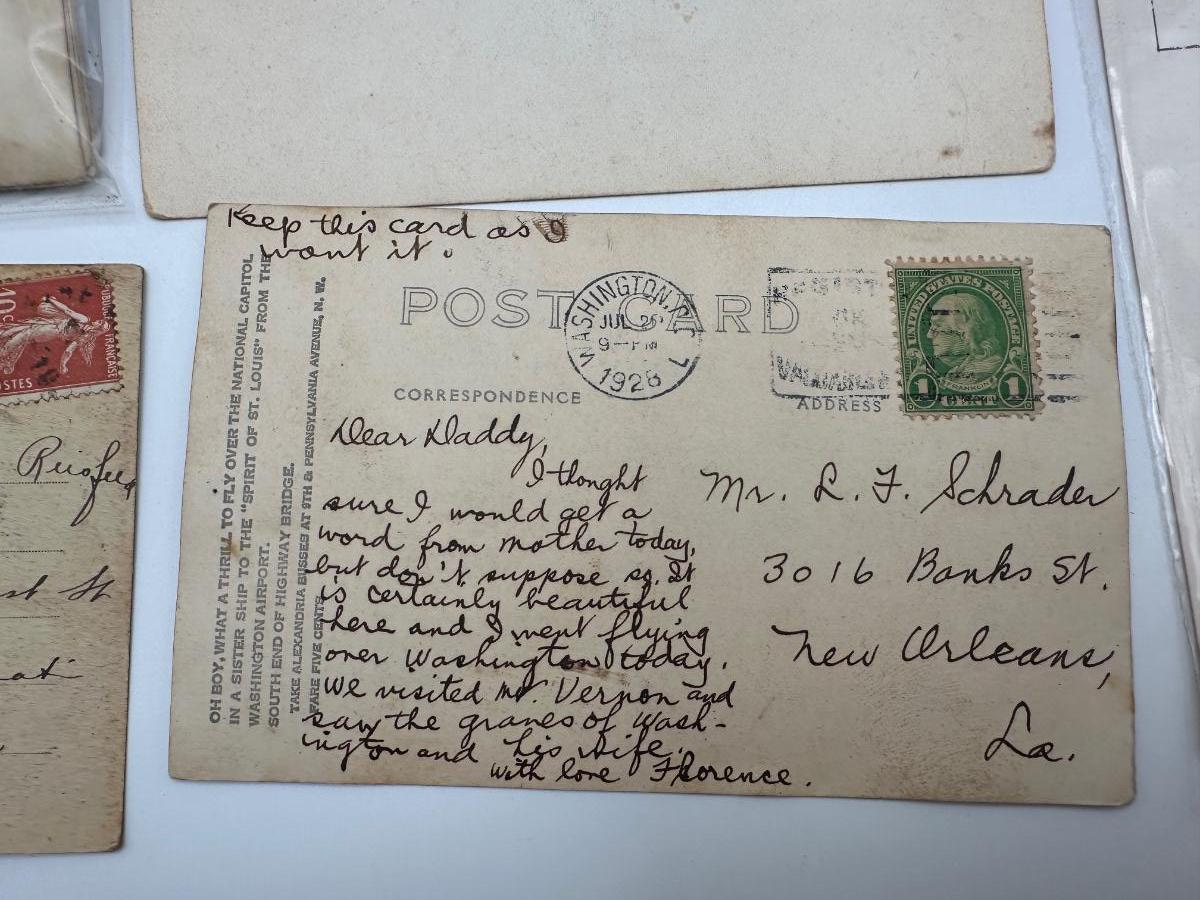 Keep this card as I
want it.
OH BOY, WHAT A THRILL TO FLY OVER THE NATIONAL CAPITOL
IN A SISTER SHIP TO THE "SPIRIT OF ST. LOUIS" FROM THE
WASHINGTON AIRPORT.
SOUTH END OF HIGHWAY BRIDGE.
TAKE ALEXANDRIA BUSSES AT 9TH & PENNSYLVANIA AVENUE, N. W.
FARE FIVE CENTS.
POST CARD
WASHINGTON, D.C.
JUL 25
9-PM
1928
CORRESPONDENCE
ADDRESS
VALUABLE
UNITED STATES POSTAGE
1 FRANKLIN 1
Dear Daddy,
I thonght
sure I would get a
word from mother today,
but don't suppose so. It
is certainly beautiful
here and I went flying
over Washington today.
We visited Mt. Vernon and
saw the graves of Wash-
ington and his wife.
With love Florence.
Mr. L. F. Schrader
3016 Banks St.
New Orleans,
La.
10c
POSTES
st St